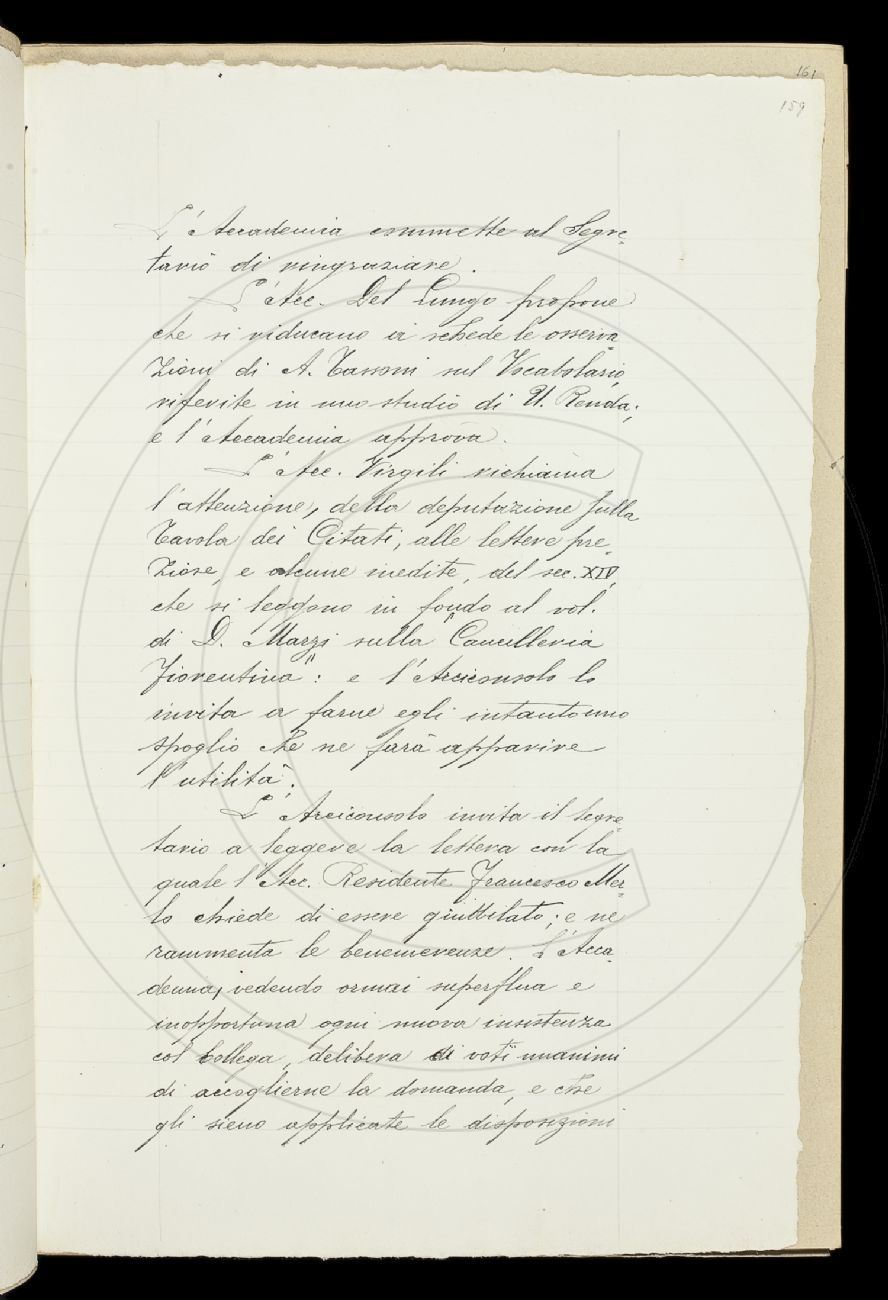 161
159
L'Accademia commette al Segre-
tario di ringraziare.
L'Acc. Del Lungo propone
che si riducano a schede le osserva-
zioni di A. Tassoni sul Vocabolario,
riferite in uno studio di U. Renda;
e l'Accademia approva.
L'Acc. Virgili richiama
l'attenzione, della deputazione sulla
Tavola dei Citati, alle lettere pre-
ziose, e alcune inedite, del sec. XIV,
che si leggono in fondo al vol.
di D. Marzi sulla "Cancelleria
Fiorentina": e l'Arciconsolo lo
invita a farne egli intanto uno
spoglio che ne farà apparire
l'utilità.
L'Arciconsolo invita il Segre-
tario a leggere la lettera con la
quale l'Acc. Residente Francesco Mer-
lo chiede di essere giubbilato; e ne
rammenta le benemerenze. L'Acca-
demia, vedendo ormai superflua e
inopportuna ogni nuova insistenza
col Collega, delibera di voti unanimi
di accoglierne la domanda, e che
gli sieno applicate le disposizioni